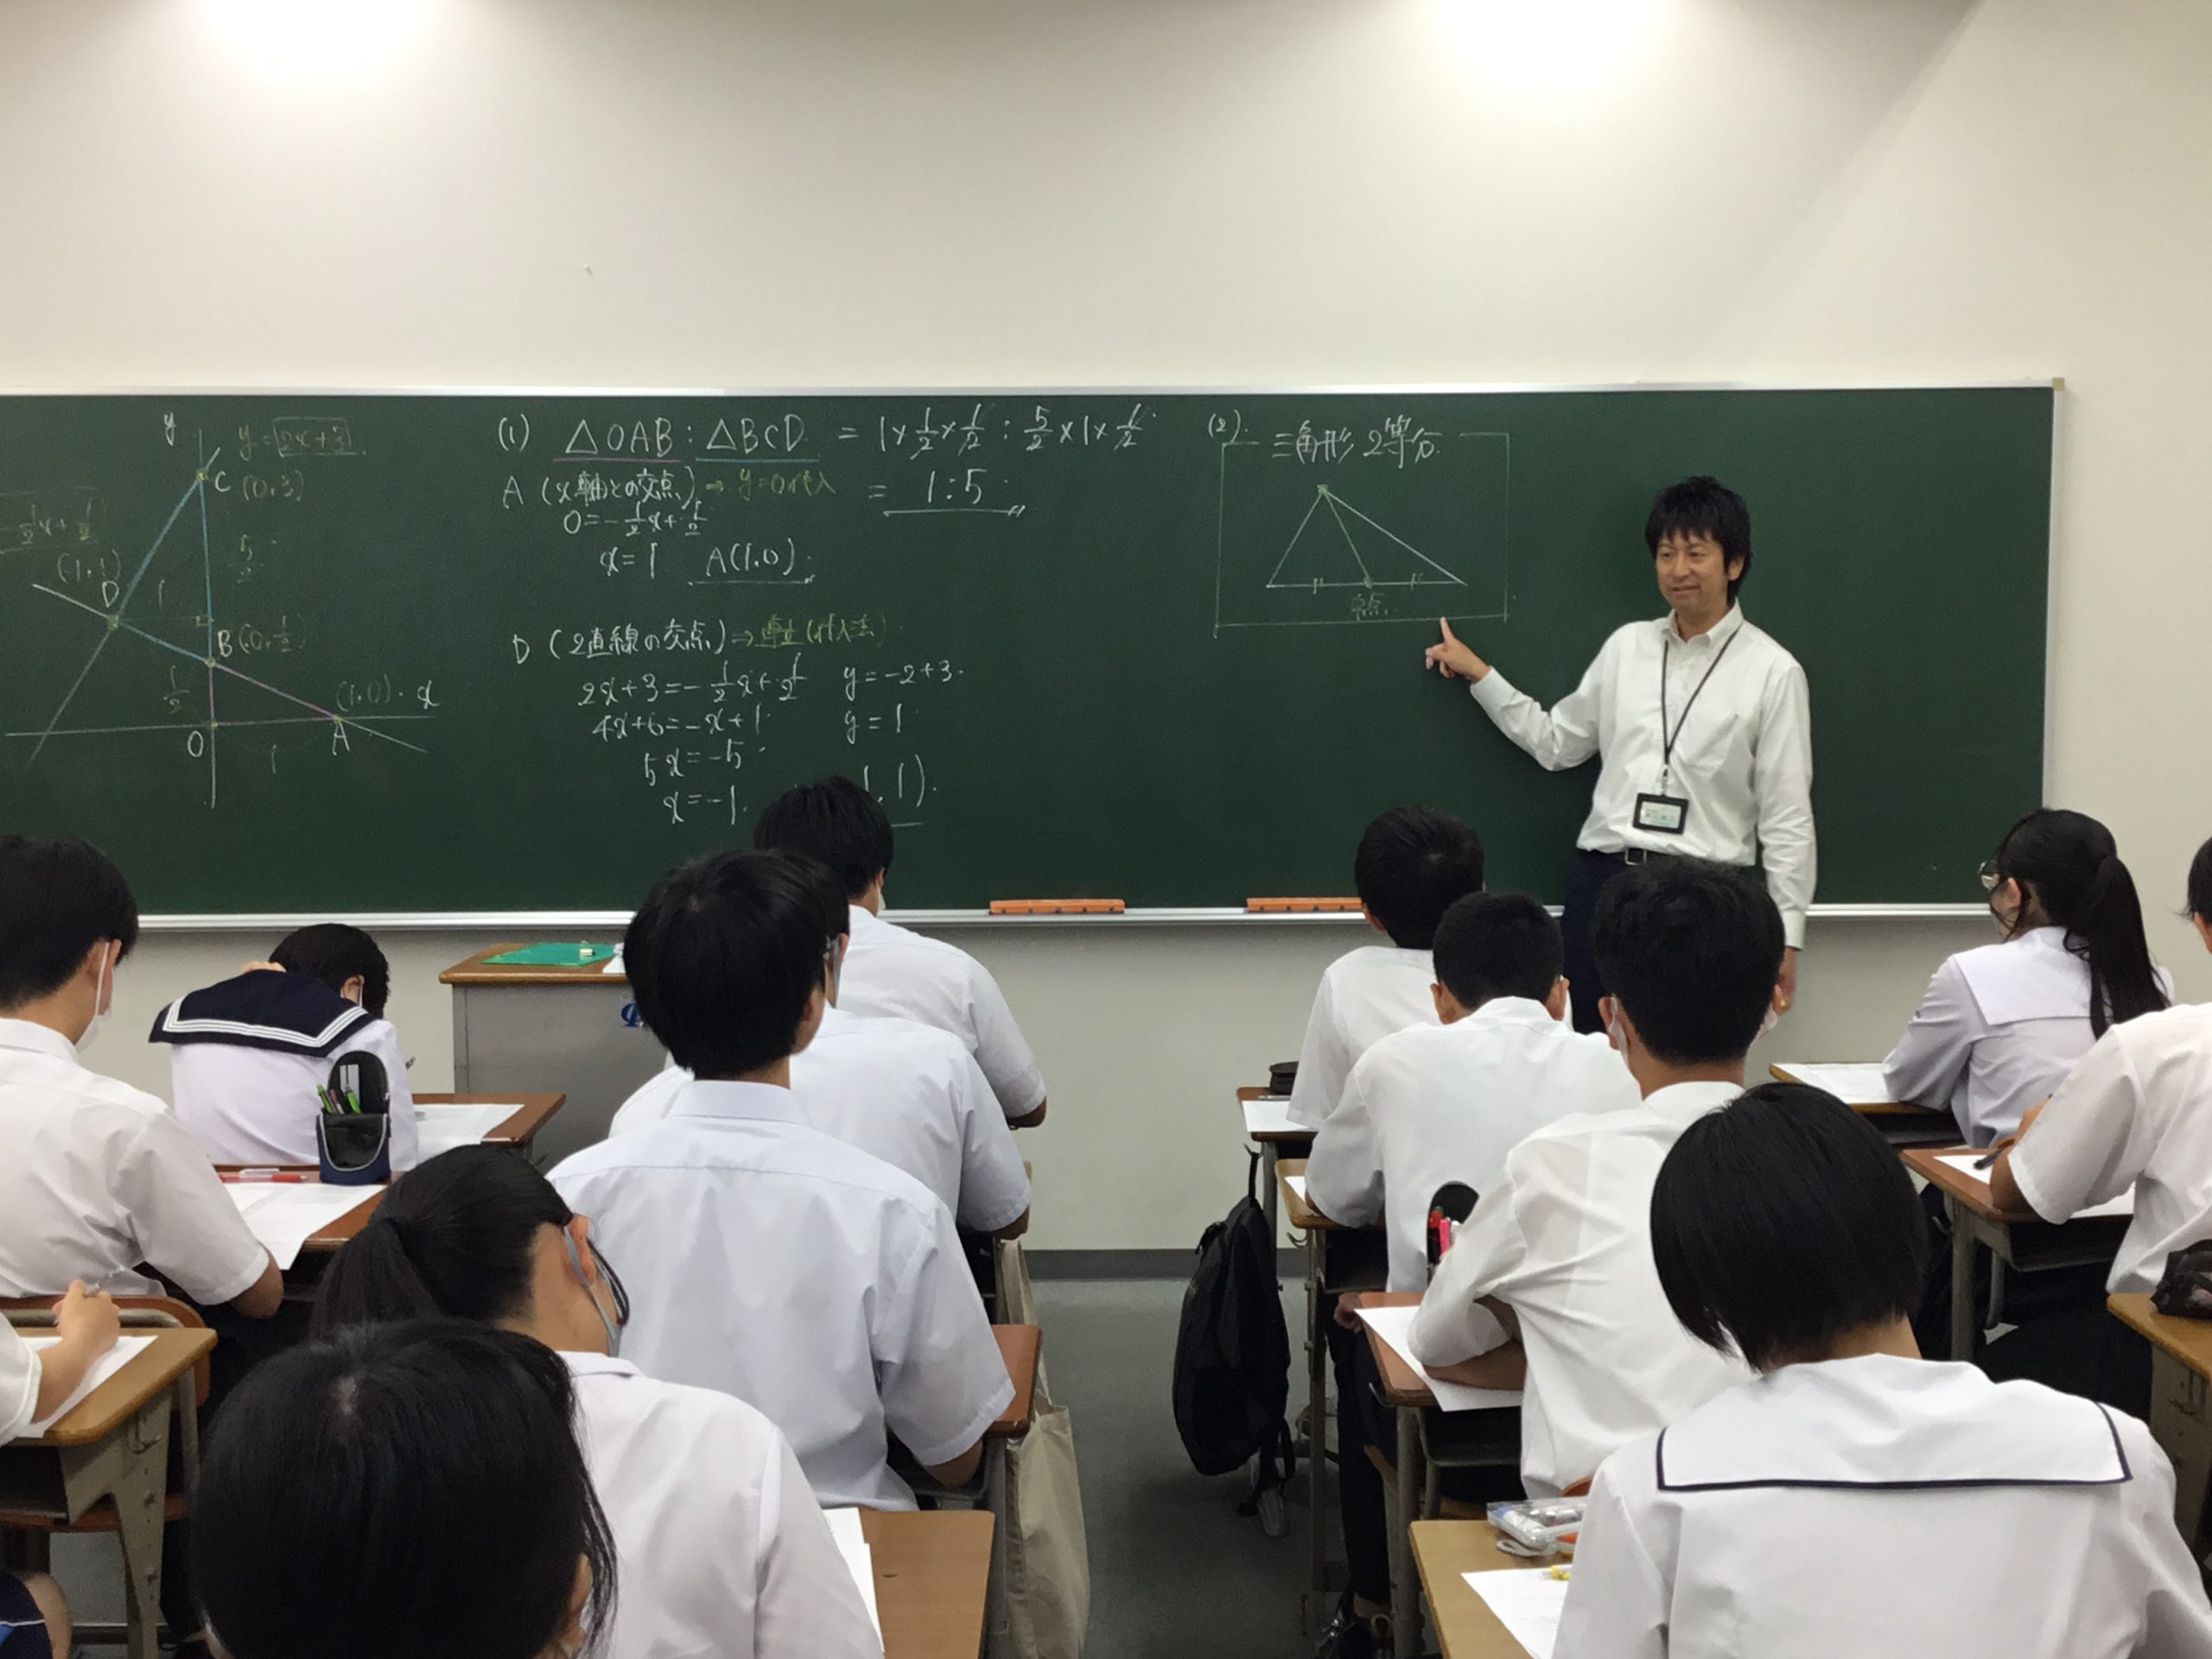 y
y = 2x+3
C (0,3)
-1/2x+1/2
5/2
(-1,1)
D
1
B (0,1/2)
1/2
(1,0)
x
O
A
1
(1) △OAB:△BCD = 1×1/2×1/2 : 5/2×1×1/2
= 1:5
A (x軸との交点) → y=0代入
0=-1/2x+1/2
x=1 A(1,0)
D (2直線の交点) ⇒ 連立 (代入法)
2x+3=-1/2x+1/2
4x+6=-x+1
5x=-5
x=-1
y=-2+3
y=1
,1)
(2)
三角形2等分
中点